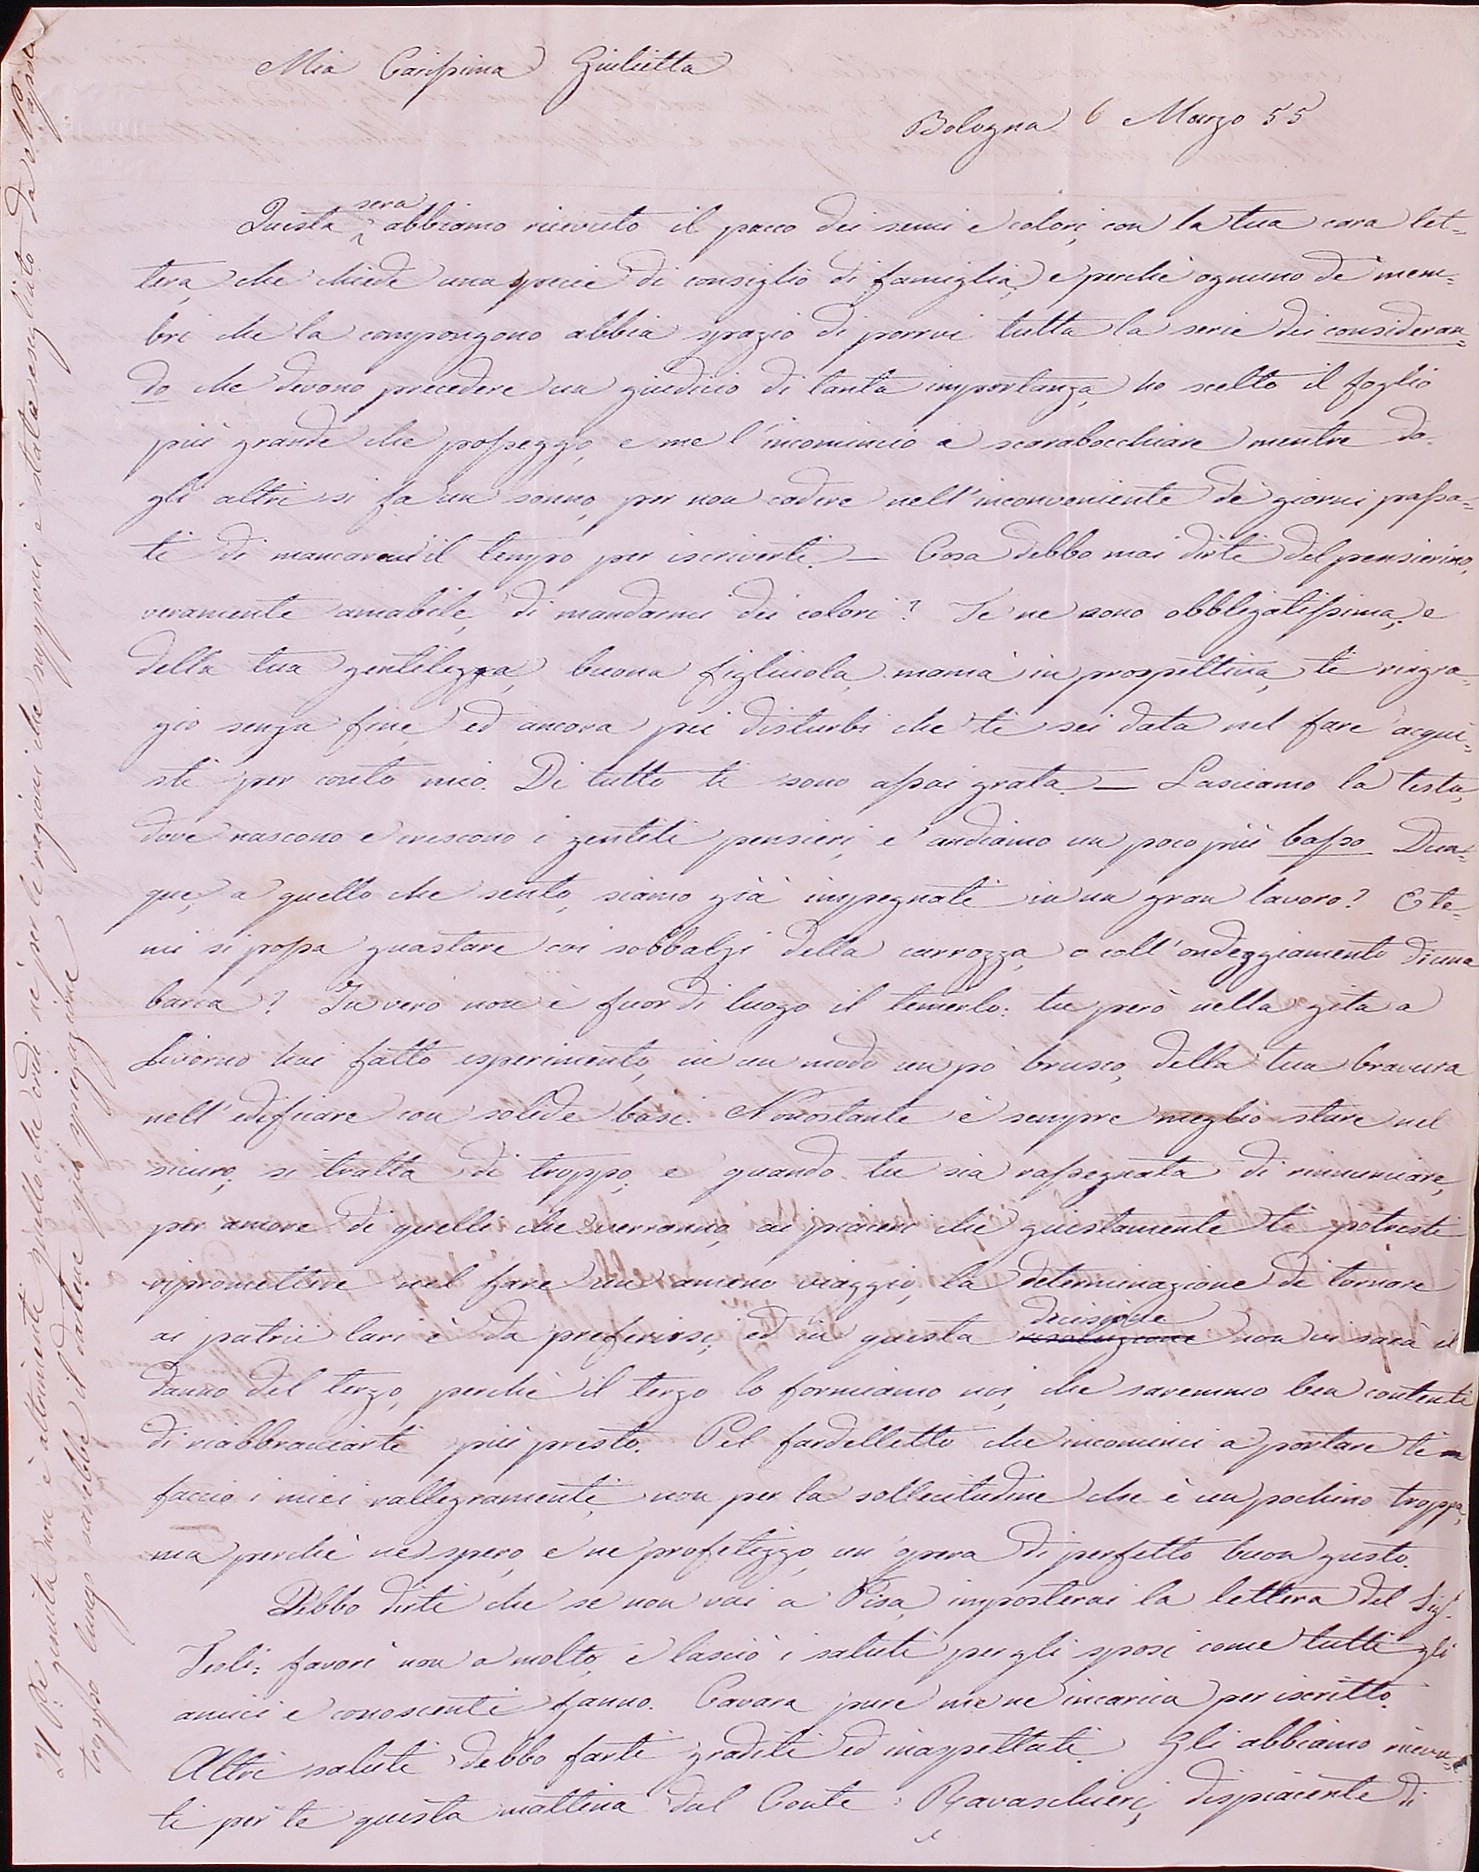 Mia Carissima Giulietta
Bologna 6 Marzo 55
Questa sera abbiamo ricevuto il pacco dei semi e colori, con la tua cara let-
tera, che chiede una specie di consiglio di famiglia, e perchè ognuno de' mem-
bri che la compongono abbia spazio di porvi tutta la serie dei consideran-
do che devono precedere un giudicio di tanta importanza, ho scelto il foglio
più grande che posseggo, e me l'incomincio a scarabocchiare mentre da
gli altri si fa un sonno, per non cadere nell'inconveniente de' giorni passa-
ti di mancarmi il tempo per iscriverti. — Cosa debbo mai dirti del pensierino,
veramente amabile, di mandarmi dei colori? Te ne sono obbligatissima, e
della tua gentilezza, buona figliuola, mamà in prospettiva, ti ringra-
zio senza fine, ed ancora pei disturbi che ti sei data nel fare acqui-
sti per conto mio. Di tutto ti sono assai grata. — Lasciamo la testa,
dove nascono e crescono i gentili pensieri, e andiamo un poco più basso Dun-
que, a quello che sento, siamo già impegnati in un gran lavoro? E te-
mi si possa guastare coi sobbalzi della carrozza, o coll'ondeggiamento di una
barca? In vero non è fuor di luogo il temerlo: tu però nella gita a
Livorno hai fatto esperimento, in un modo un pò brusco, della tua bravura
nell'edificare con solide basi. Nonostante è sempre meglio stare nel
sicuro; si tratta di troppo; e quando tu sia rassegnata di rinunciare,
per amore di quelli che verranno, ai piaceri che giustamente ti potresti
ripromettere nel fare un ameno viaggio, la determinazione di tornare
ai patrii lari è da preferirsi; ed in questa risoluzione decisione non vi sarà il
danno del terzo, perchè il terzo lo formiamo noi, che saremmo ben contenti
di riabbracciarti più presto. Pel fardelletto che incominci a portare ti
faccio i miei rallegramenti, non per la sollecitudine che è un pochino troppa,
ma perchè ne spero, e ne profetizzo, un'opera di perfetto buon gusto.
Debbo dirti che se non vai a Pisa, imposterai la lettera del Sig.
Tioli; favorì non a molto, e lasciò i saluti per gli sposi come tutti gli
amici e conoscenti fanno. Cavara pure me ne incarica per iscritto.
Altri saluti debbo farti graditi ed inaspettati. Gli abbiamo ricevu-
ti per te questa mattina dal Conte Ravaschieri, dispiacente di
Il Re genuita non è altrimenti quello che credi nè per le ragioni che supponi è stata esigliato da Napoli
troppo lungo sarebbe il dartene quì spiegazione